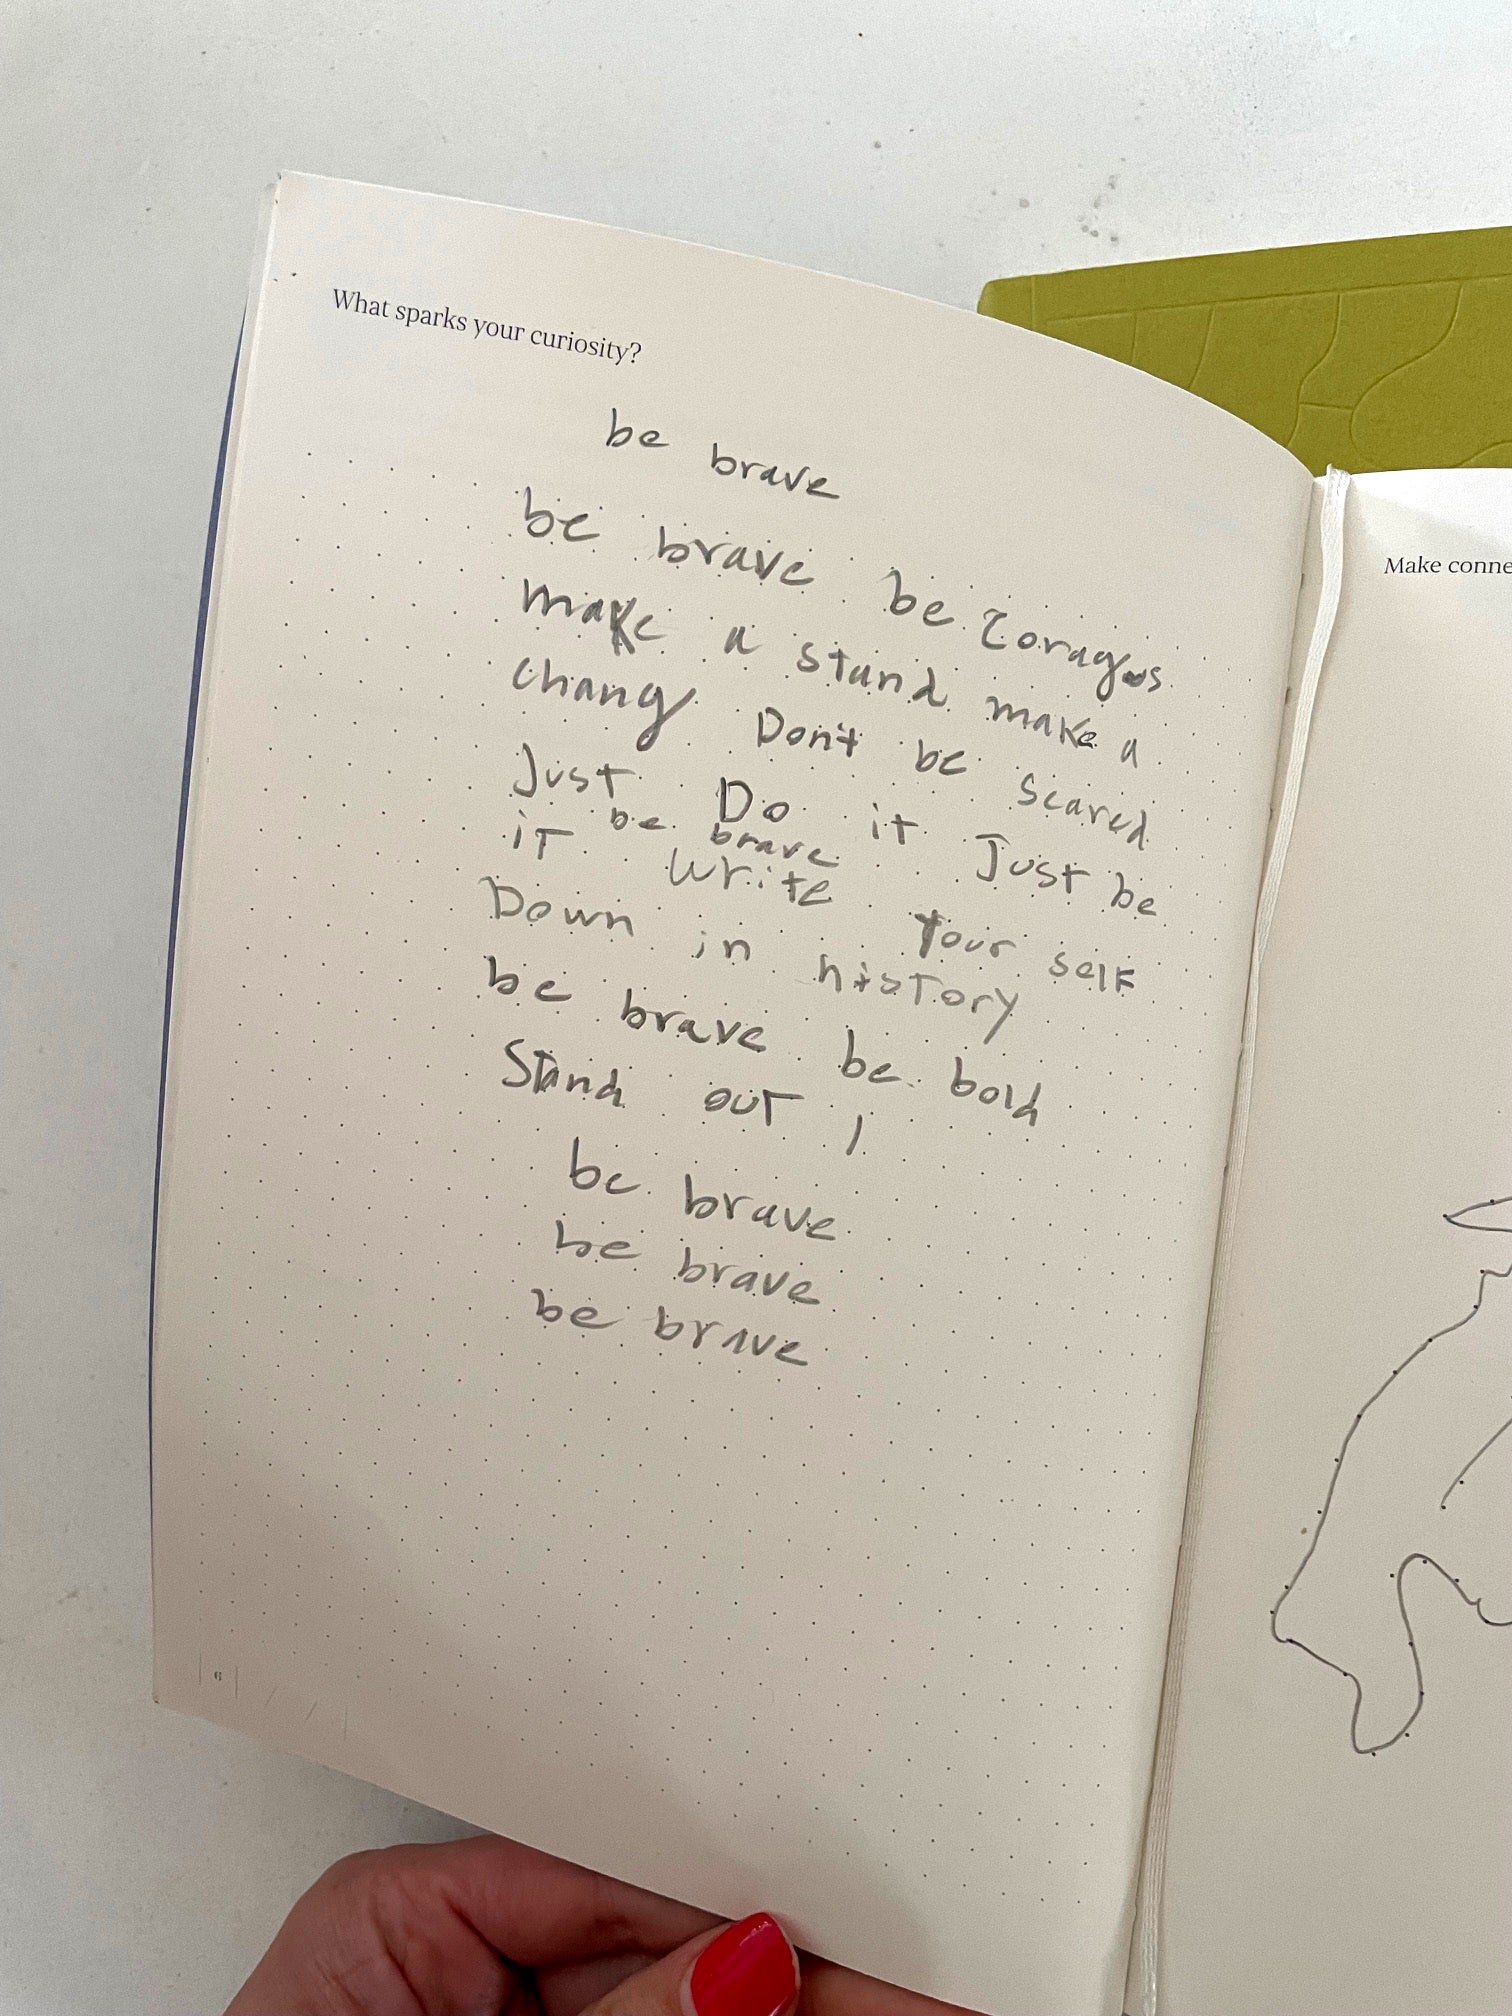 What sparks your curiosity?
be brave
be brave be coragos
make a stand make a
chang Don't be scared
Just Do it Just be
it be brave
write Your self
Down in history
be brave be bold
Stand out !
be brave
be brave
be brave
6
Make conne